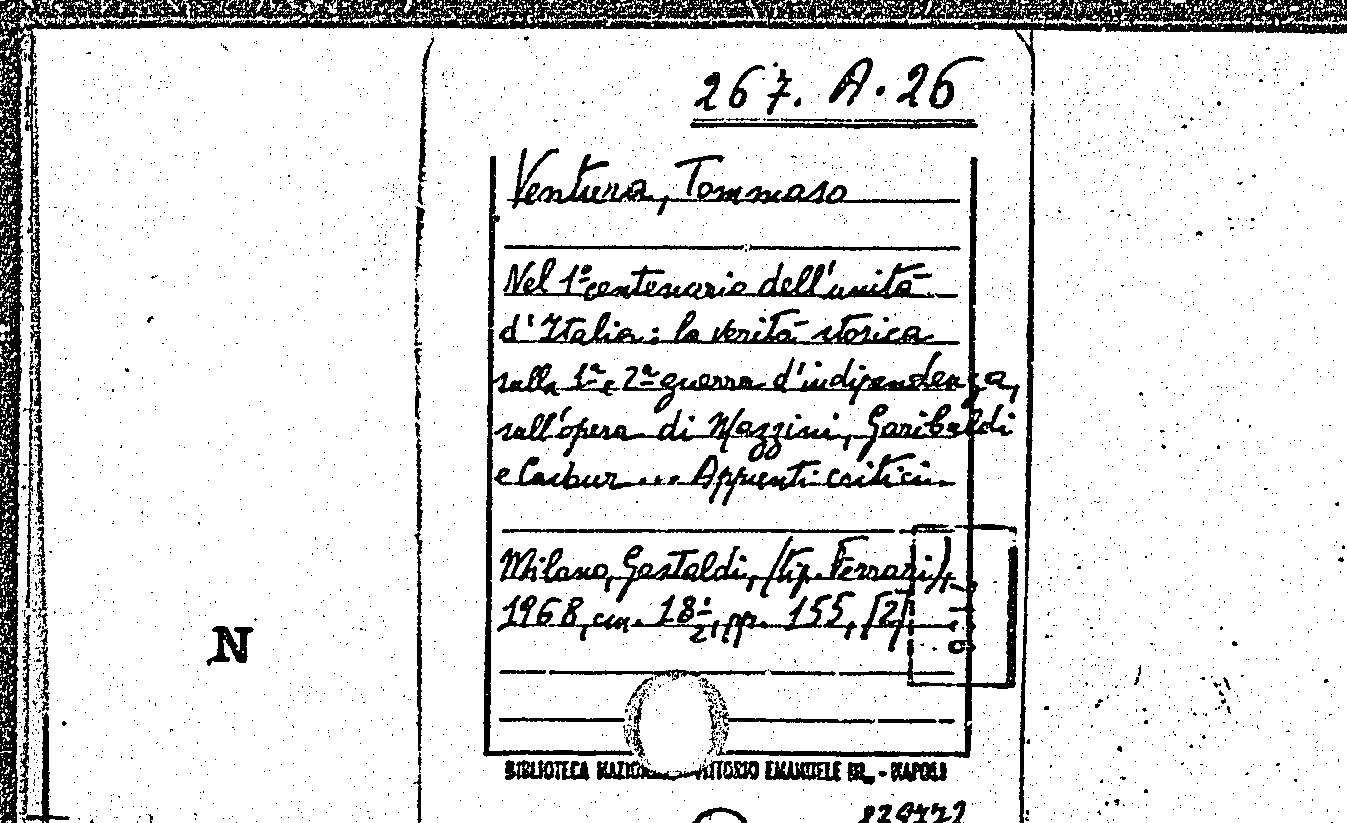 267. A. 26
Ventura, Tommaso
Nel 1º centenario dell'unità
d'Italia: la verità storica
sulla 1ª e 2ª guerra d'indipendenza,
sull'opera di Mazzini, Garibaldi
e Cavour... Appunti critici.
Milano, Gastaldi, (tip. Ferrari),
1968, cm. 18½, pp. 155, [2]
N
BIBLIOTECA VITTORIO EMANUELE III - NAPOLI